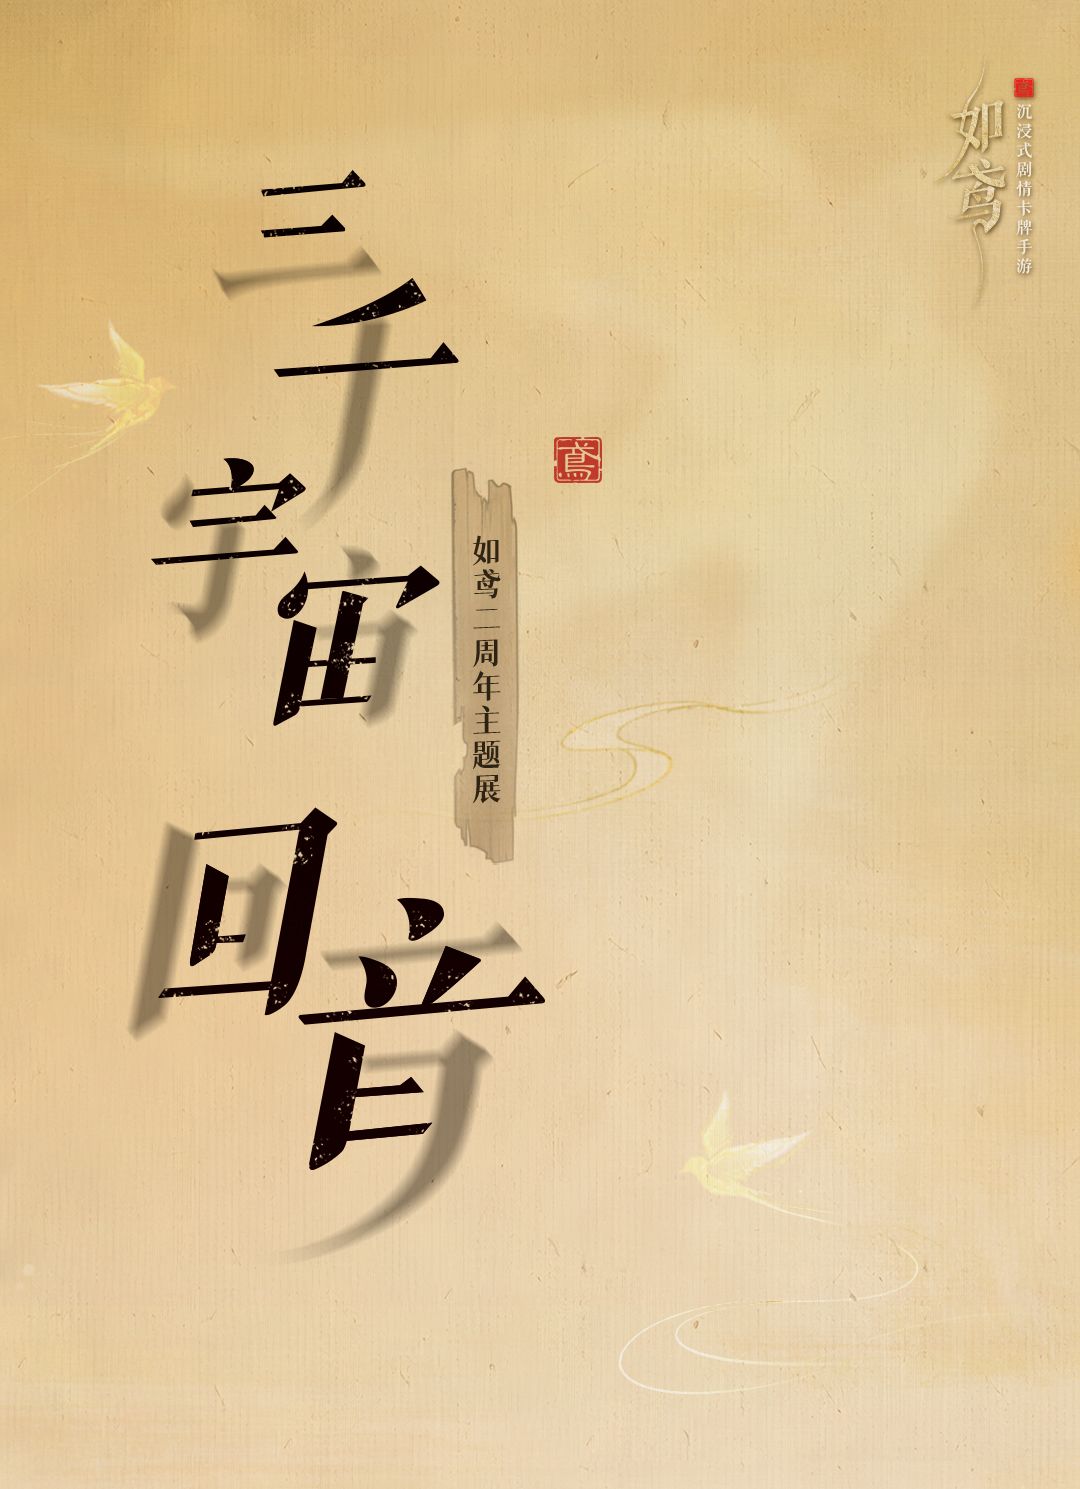 三千宇宙回音
如鸢二周年主题展
鸢
如鸢
鸢
沉浸式剧情卡牌手游